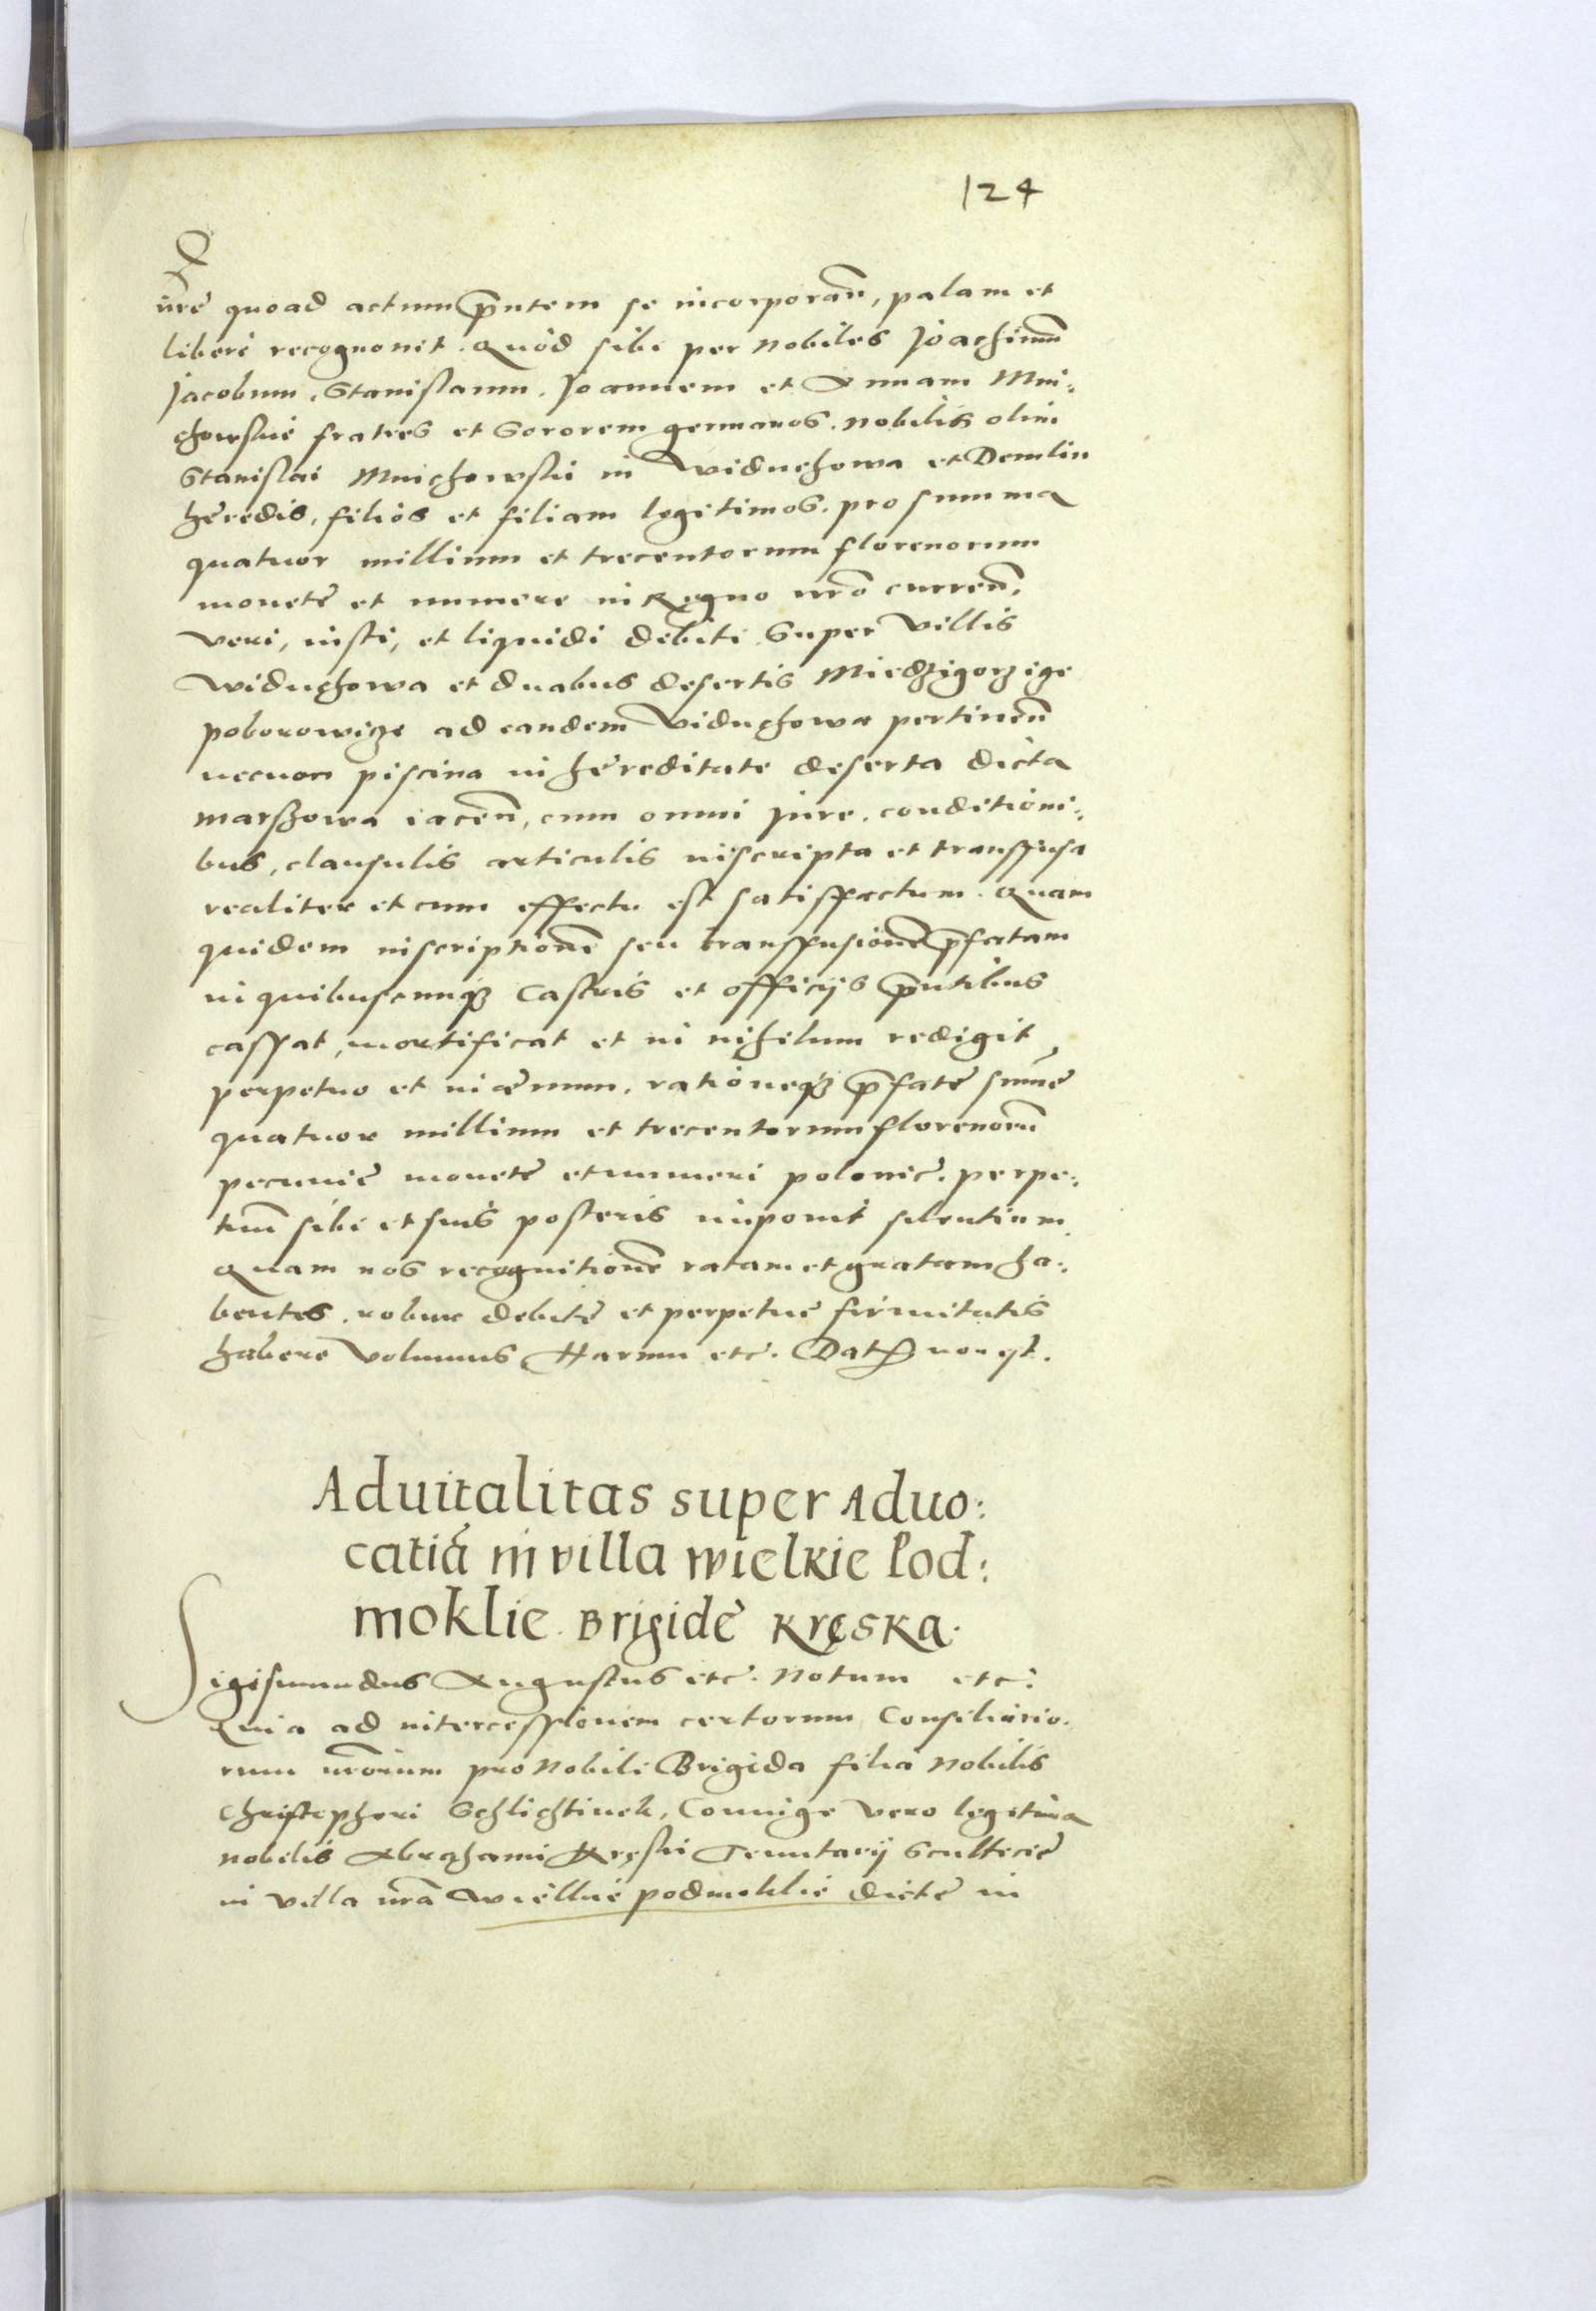 124
nr̃e quoad actum p̃ntem se incorporan̄, palam et
libere recognovit. Quòd sibi per Nobiles Joachimũ
Jacobum, Stanislaum, Joannem et Annam Mni:
chowskie fratres et Sororem germanos, nobilis olim
Stanislai Mnichowski in Widuchowa et Demlin
heredis, filios et filiam legitimos, pro summa
quatuor millium et trecentorum florenorum
monetę et numere in Regno nr̃o curren̄,
veri, iusti, et liquidi debiti Super Villis
Widuchowa et duabus desertis
ad eandem Widuchowa pertinen̄
necnon piscina in hereditate deserta dicta
iacen̄, cum omni jure, conditioni:
bus, clausulis articulis inscripta et transfusa
realiter et cum effectu est satisfactum. Quam
quidem inscriptionẽ seu transfusionẽ p̃fatam
in quibuscunq3 Castris et officijs p̃ntibus
cassat, mortificat et in nihilum redigit
perpetuo et in ævum, rationeq3 p̃fatę sum̃ę
quatuor millium et trecentorum florenorũ
pecunię monetę et numeri polonic̃. perpe:
tuũ sibi et suis posteris imponit silentium.
Quam nos recognitionẽ ratam et gratam ha:
bentes, robur debitę et perpetuę firmitatis
habere volumus Harum etc̃. Dat̃ non est.
Aduitalitas super Aduo:
catiã in villa wielkie Pod:
moklie Brigidę Kręska.
Sigismundus Augustus etc̃. Notum etc̃.
Quia ad intercessionem certorum Consiliario.
rum nr̃orum pro Nobili Brigida filia Nobilis
Christopheri Schlichtinck, Coniuge vero legitima
nobilis Abrahami Kręski Tenutarij Scultecię
in villa nr̃a Wielkie podmoklie dictę in